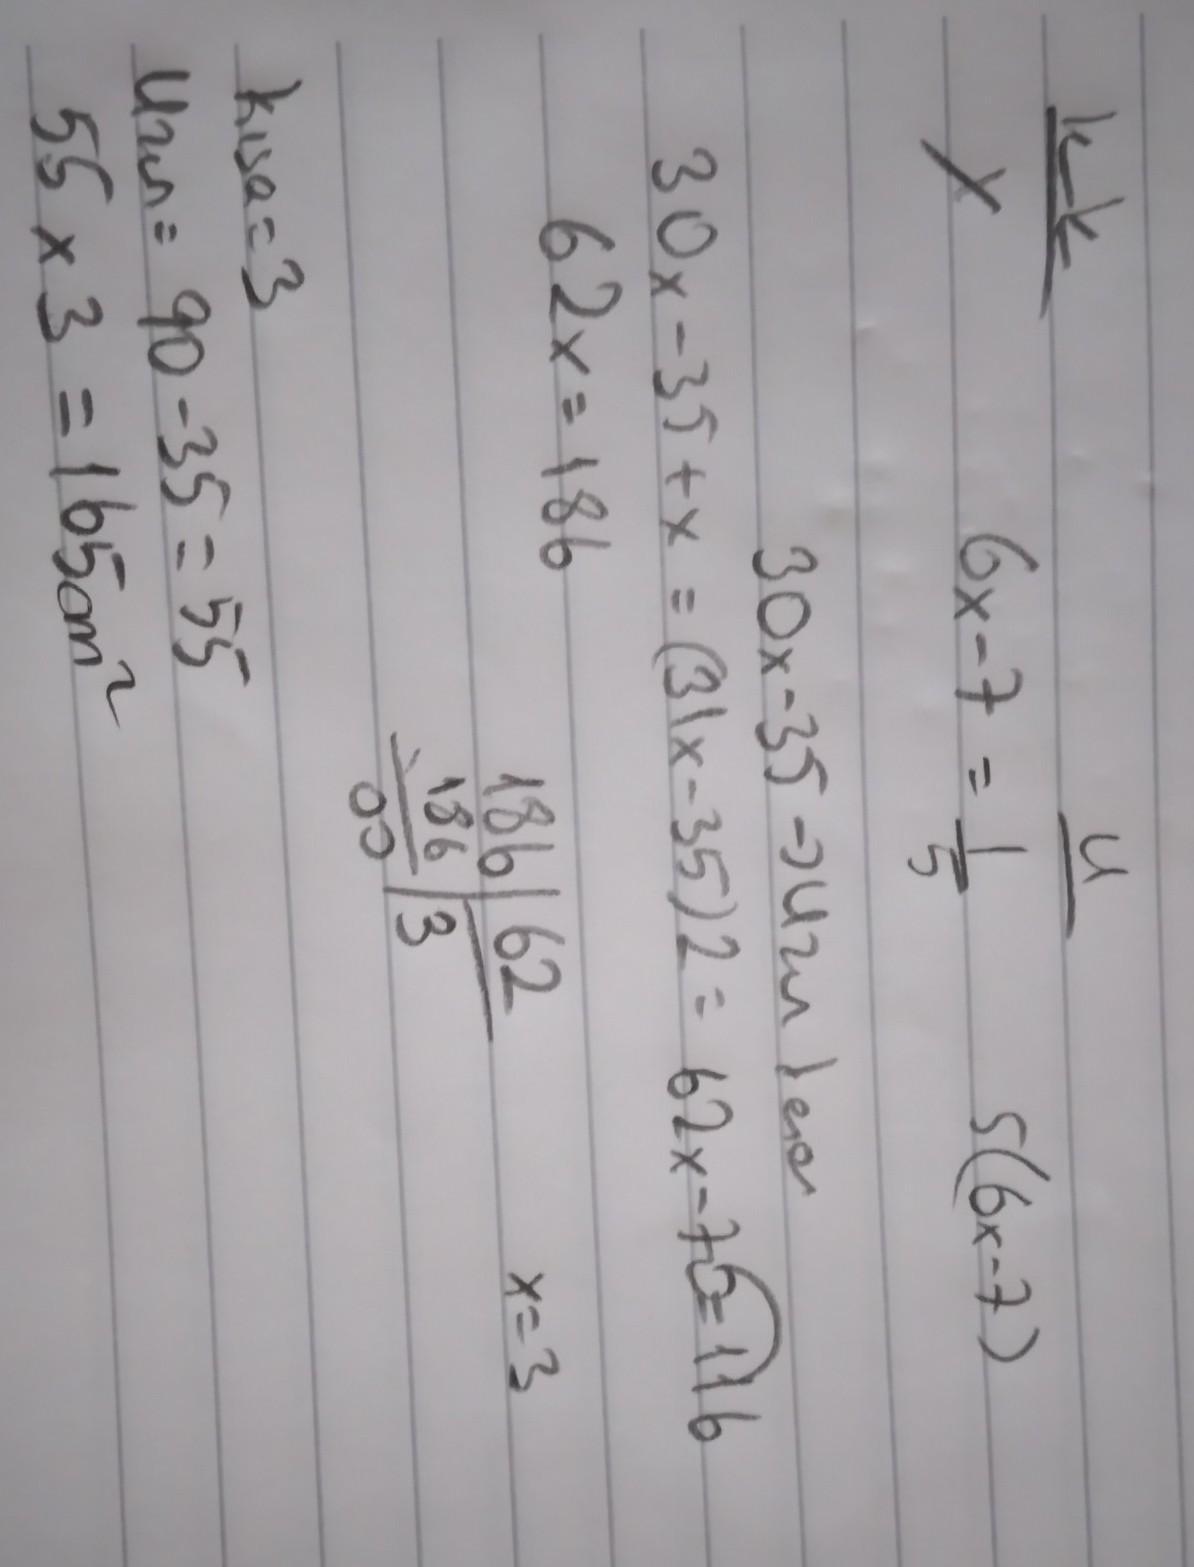 kk u
x 6x-7 = 1/5 5(6x-7)
30x-35 → uzun kenar
30x-35+x = (31x-35)2 = 62x-70=116
62x=186
186 | 62 x=3
186 3
00
kısa=3
uzun= 90-35=55
55x3=165cm²